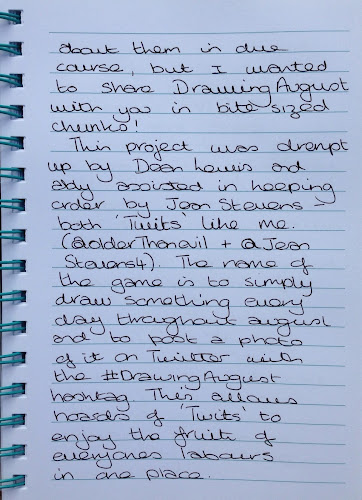 about them in due
course, but I wanted
to share Drawing August
with you in bite sized
chunks!
This project was drempt
up by Dean Lewis and
ably assisted in keeping
order by Jean Stevens -
both 'Twits' like me.
(@olderThanevil + @Jean
Stevens4). The name of
the game is to simply
draw something every
day throughout august
and to post a photo
of it on Twitter with
the #DrawingAugust
hashtag. This allows
hoards of 'Twits' to
enjoy the fruit of
everyones labours
in one place.